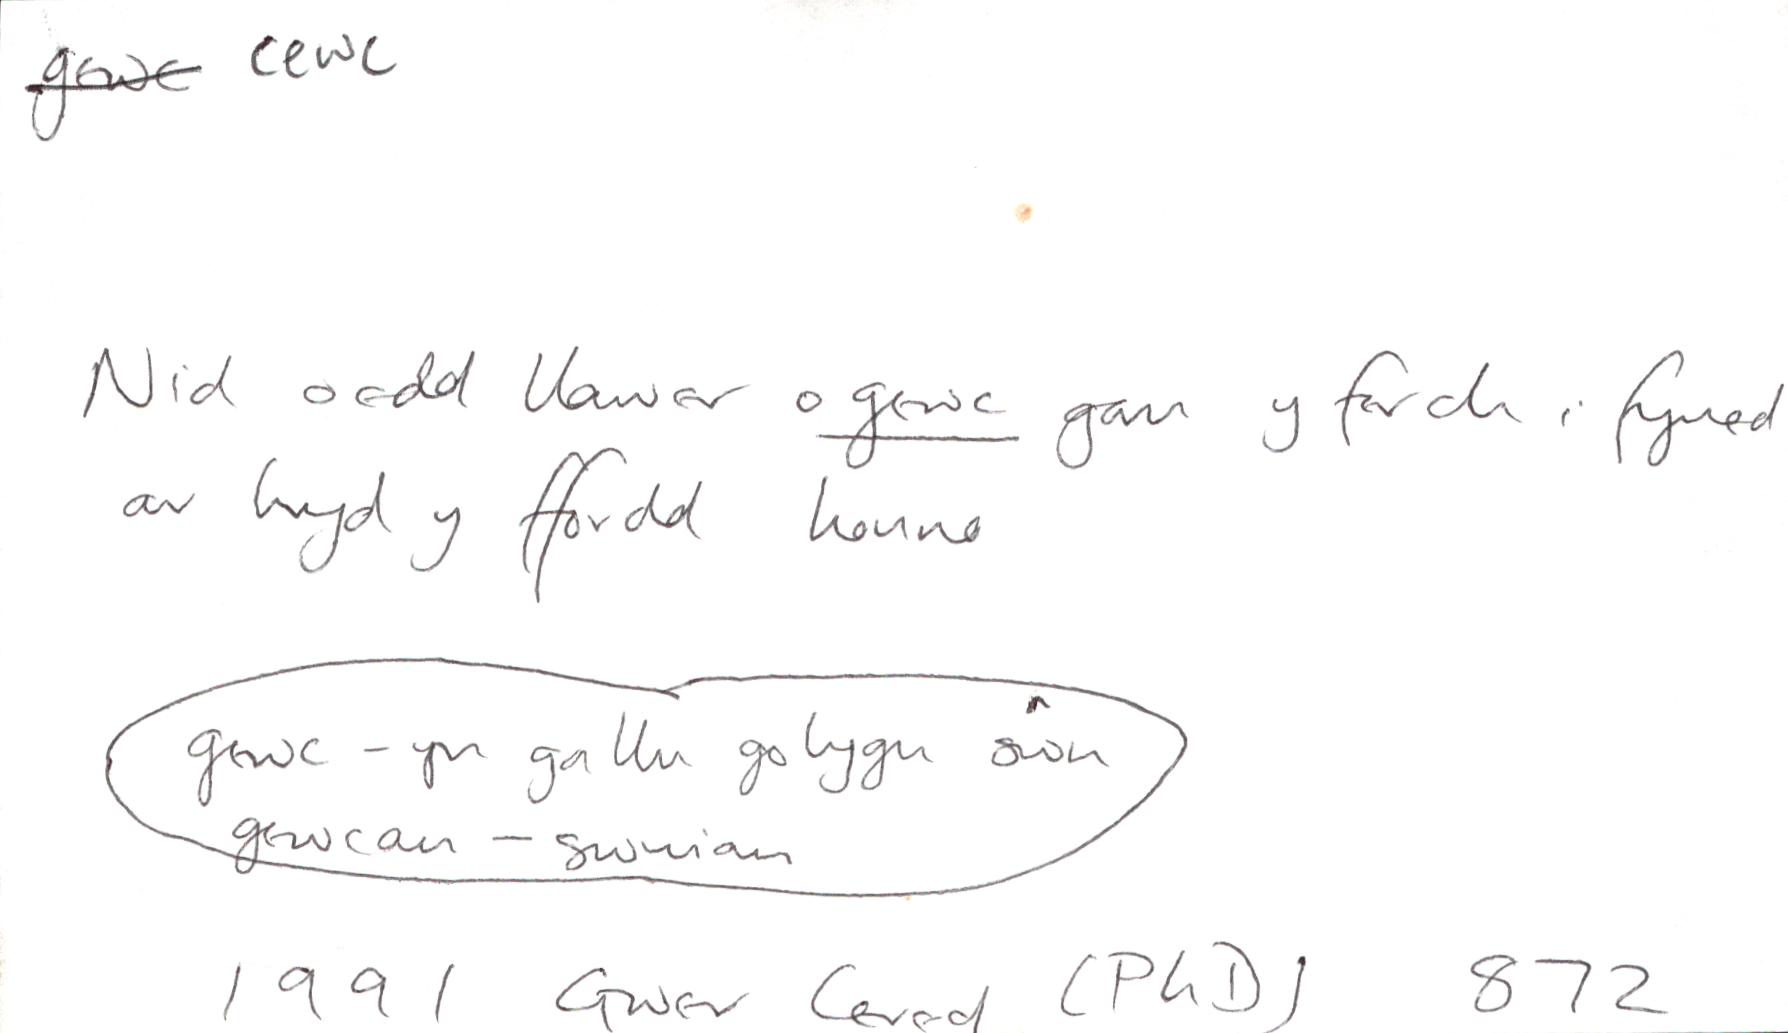 gewc cewc
Nid oedd llawer o gewc gan y ferch i fyned
ar hyd y ffordd honno
gewc - yn gallu golygu sŵn
gewcan - swnian
1991 Gwer Cered (PhD) 872